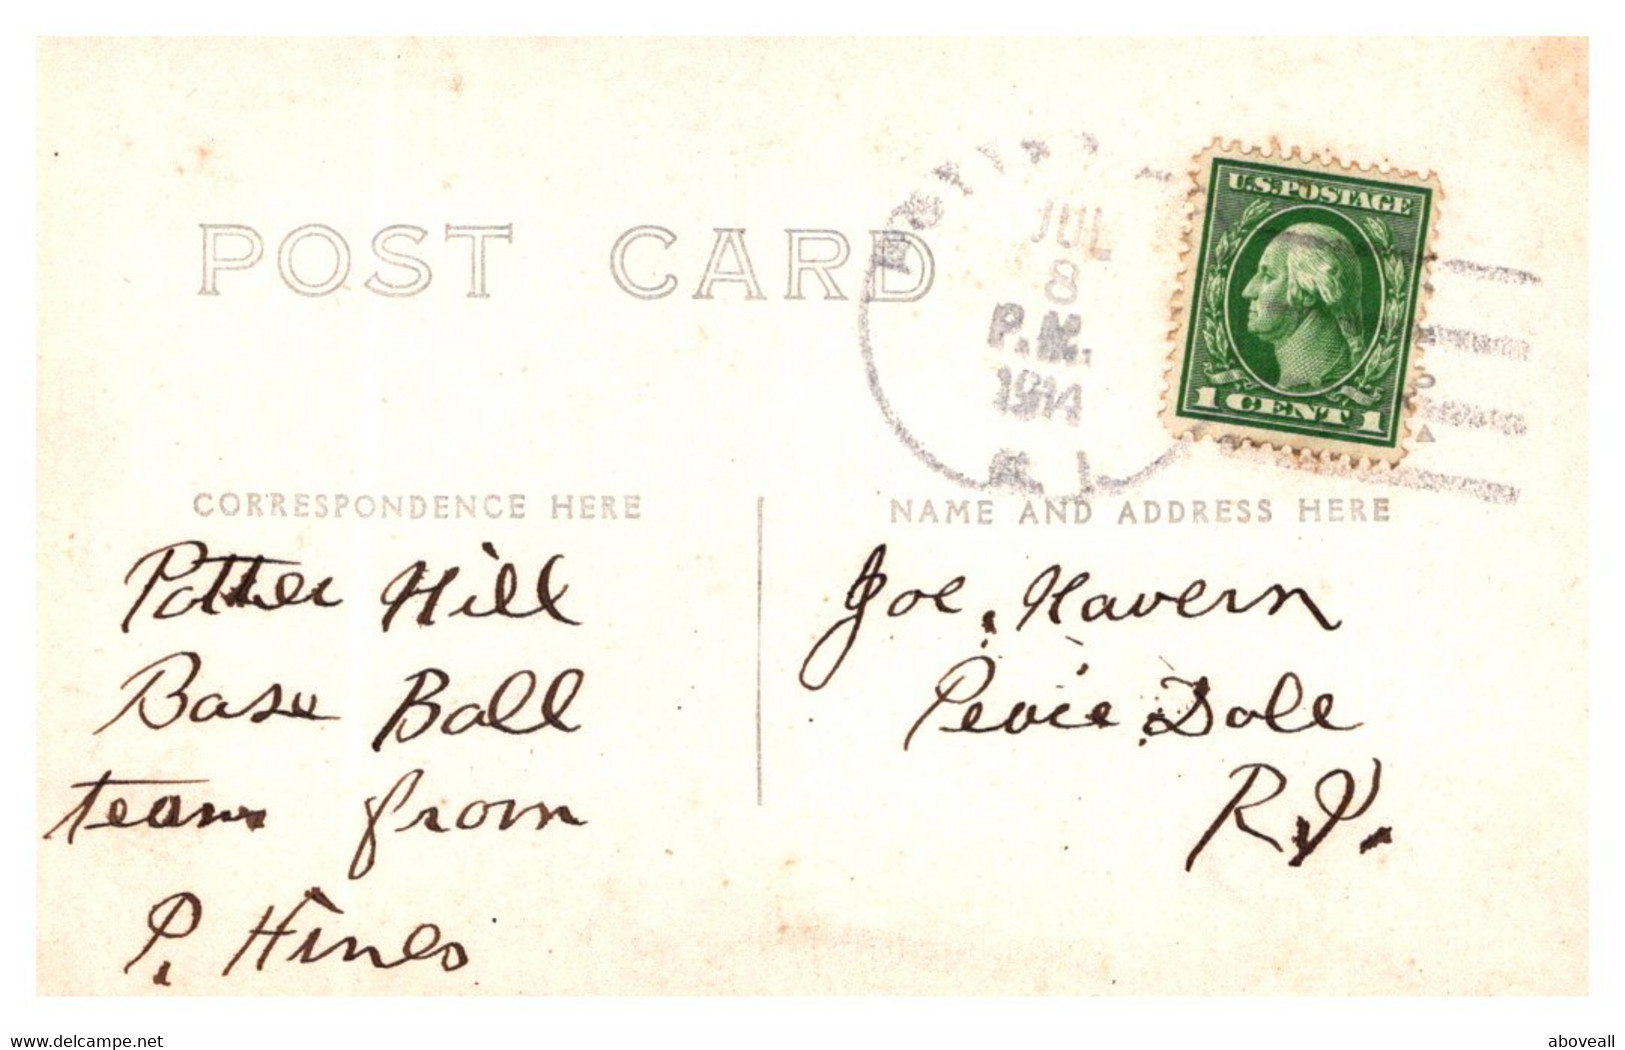 POST CARD
JUL
8
P.M.
1914
R.I.
U.S. POSTAGE
1 CENT 1
CORRESPONDENCE HERE
NAME AND ADDRESS HERE
Potter Hill
Base Ball
team from
P. Hines
Joe. Havern
Peace Dale
R.I.
the-delcampe.net
aboveall